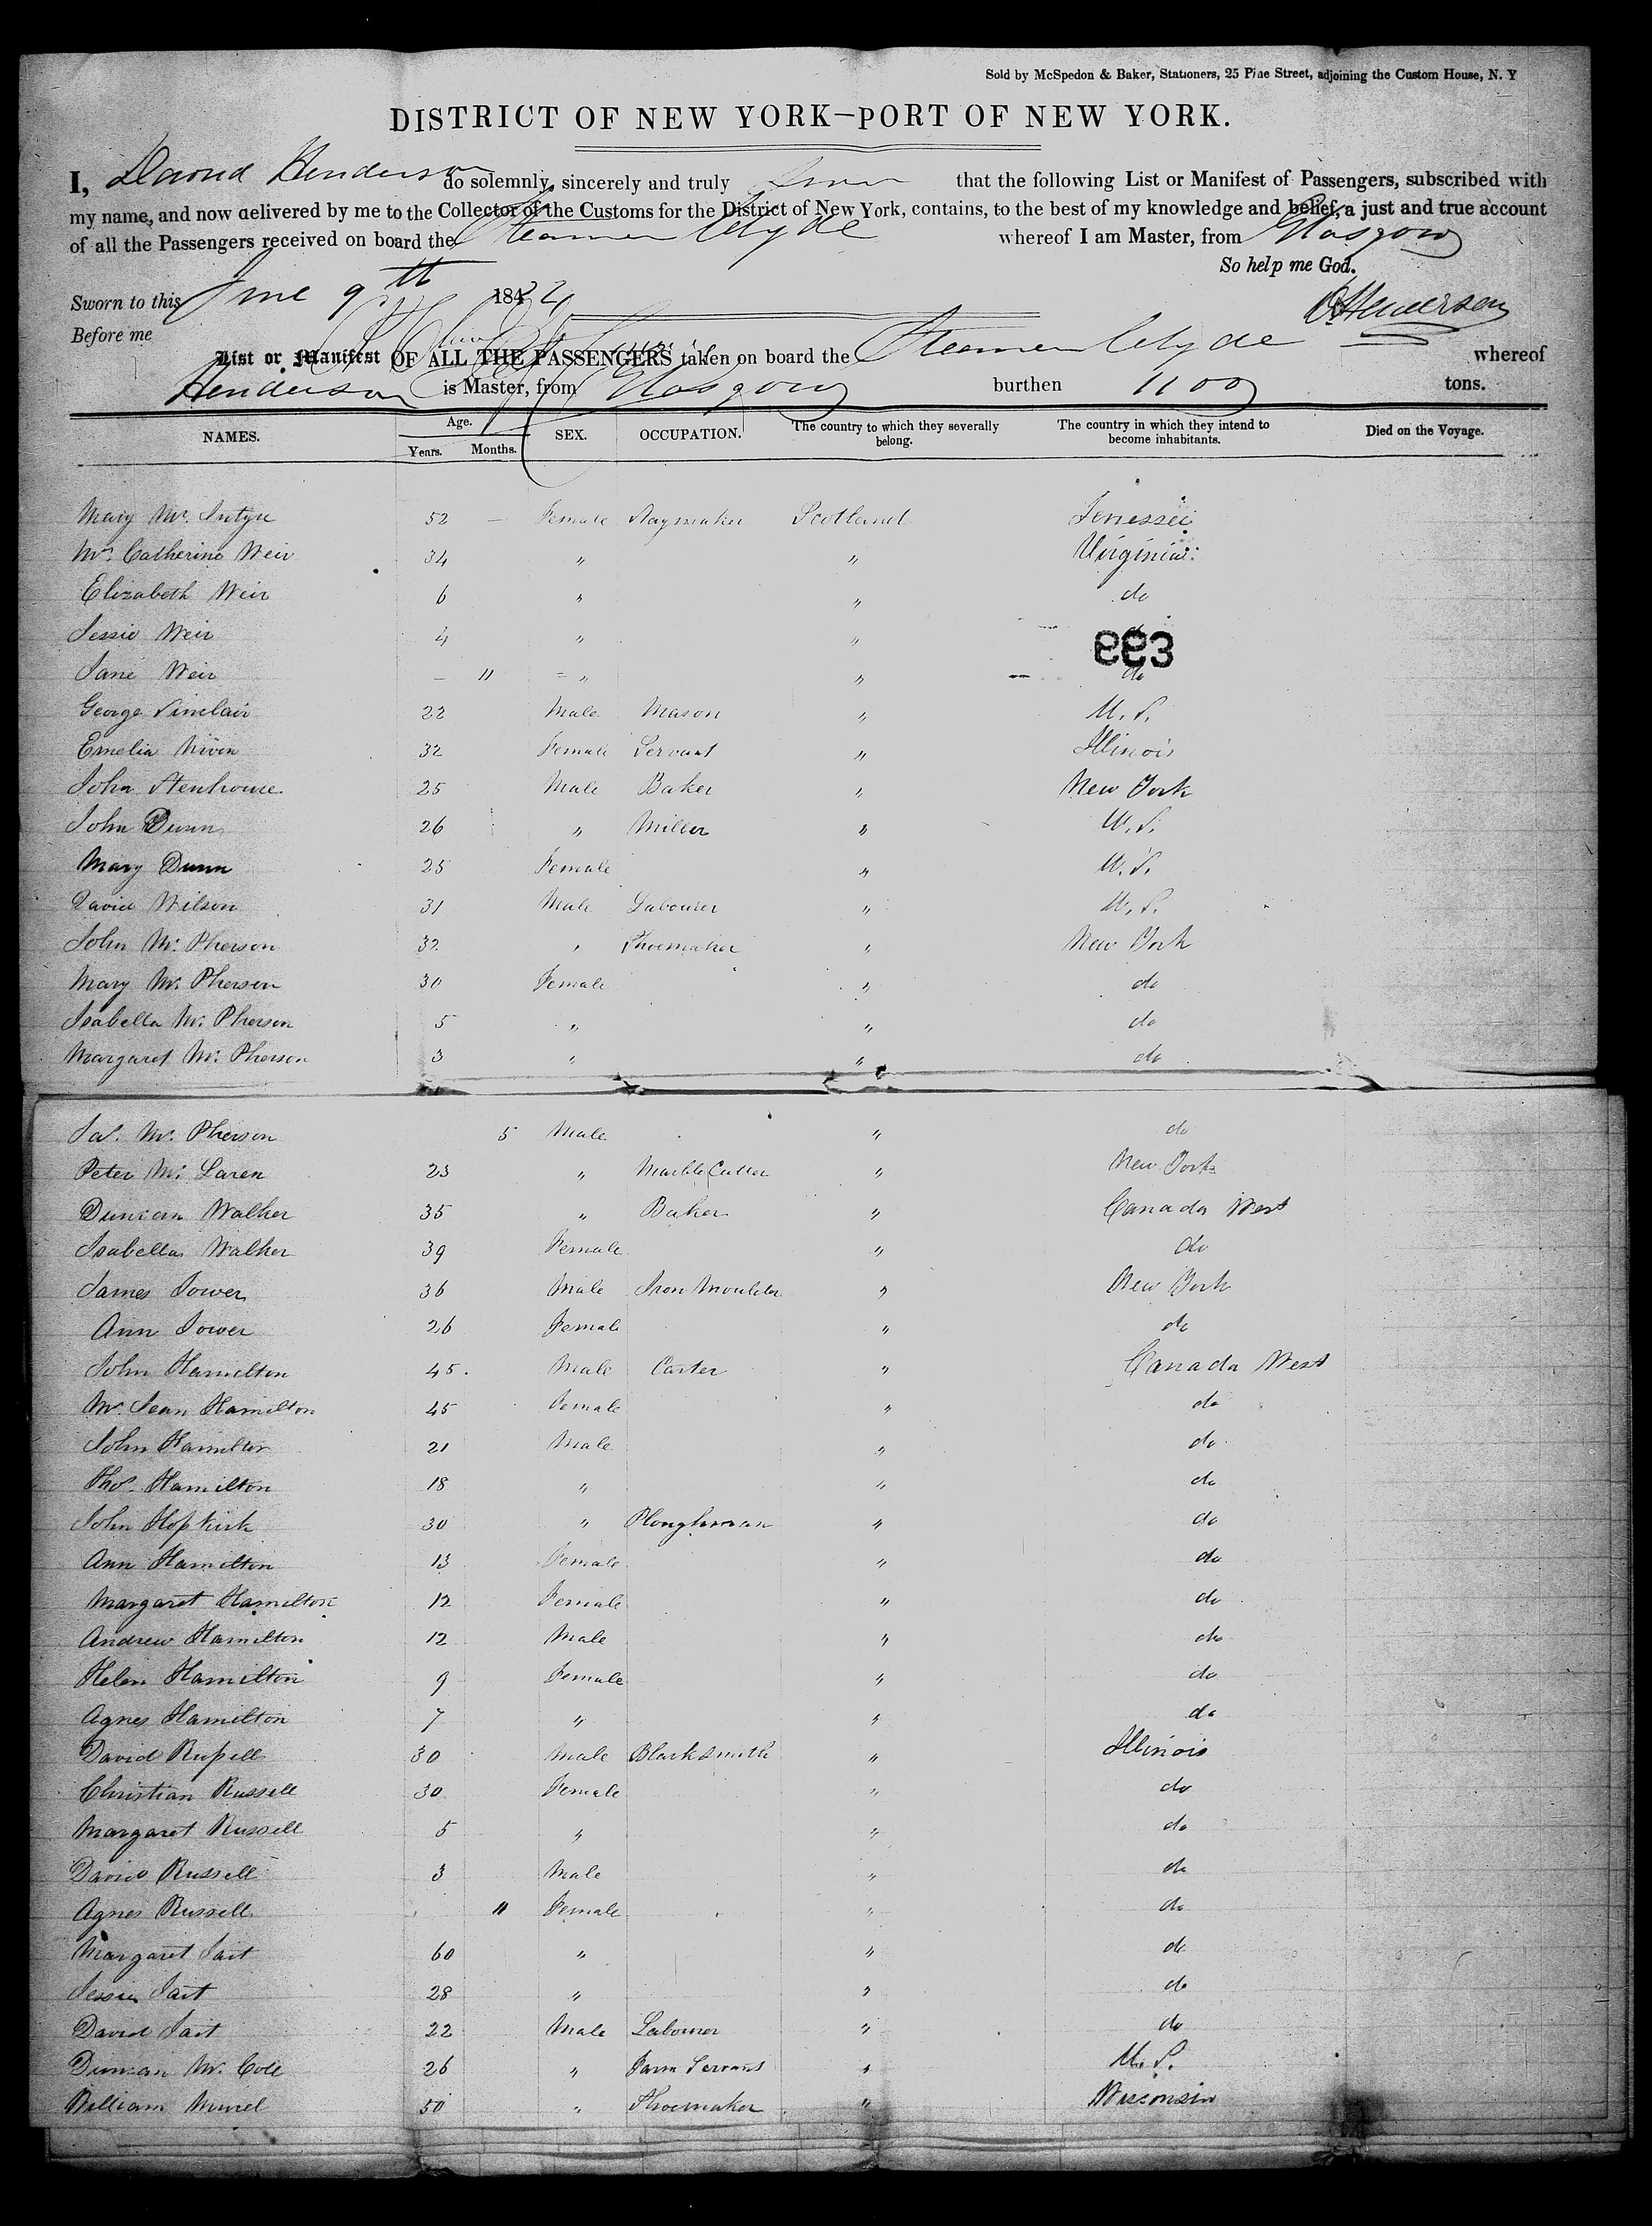 Sold by McSpedon & Baker, Stationers, 25 Pine Street, adjoining the Custom House, N. Y
DISTRICT OF NEW YORK—PORT OF NEW YORK.
I, David Henderson do solemnly, sincerely and truly swear that the following List or Manifest of Passengers, subscribed with
my name, and now delivered by me to the Collector of the Customs for the District of New York, contains, to the best of my knowledge and belief, a just and true account
of all the Passengers received on board the Steamer Clyde whereof I am Master, from Glasgow
So help me God.
Sworn to this June 9th 1854
D Henderson
Before me
List or Manifest OF ALL THE PASSENGERS taken on board the Steamer Clyde whereof
Henderson is Master, from Glasgow burthen 1100 tons.
NAMES. Age. Years. Months. SEX. OCCUPATION. The country to which they severally belong. The country in which they intend to become inhabitants. Died on the Voyage.
Mary Mc Intyre 52 — Female Staymaker Scotland Tenessee
Mrs Catherine Weir 34 " " Virginia
Elizabeth Weir 6 " " do
Jessie Weir 4 " "
Jane Weir — 11 " " do
993
George Sinclair 22 Male Mason " U.S.
Emelia Niven 32 Female Servant " Illinois
John Stenhouse 25 Male Baker " New York
John Dunn 26 " Miller " U.S.
Mary Dunn 25 Female " U.S.
David Wilson 31 Male Labourer " U.S.
John Mc Pherson 32 " Shoemaker " New York
Mary Mc Pherson 30 Female " do
Isabella Mc Pherson 5 " " do
Margaret Mc Pherson 3 " " do
Jas. Mc Pherson 5 Male " do
Peter Mc Laren 23 " Marble Cutter " New York
Duncan Walker 35 " Baker " Canada West
Isabella Walker 39 Female " do
James Tower 36 Male Iron Moulder " New York
Ann Tower 26 Female " do
John Hamilton 45 Male Carter " Canada West
Mrs Jean Hamilton 45 Female " do
John Hamilton 21 Male " do
Thos. Hamilton 18 " " do
John Hopkirk 30 " Ploughman " do
Ann Hamilton 13 Female " do
Margaret Hamilton 12 Female " do
Andrew Hamilton 12 Male " do
Helen Hamilton 9 Female " do
Agnes Hamilton 7 " " do
David Russell 30 Male Blacksmith " Illinois
Christian Russell 30 Female " do
Margaret Russell 5 " " do
David Russell 3 Male " do
Agnes Russell 11 Female " do
Margaret Tait 60 " " do
Jessie Tait 28 " " do
David Tait 22 Male Labourer " do
Duncan Mc Coll 26 " Farm Servant " U.S.
William 50 " Shoemaker " Wisconsin